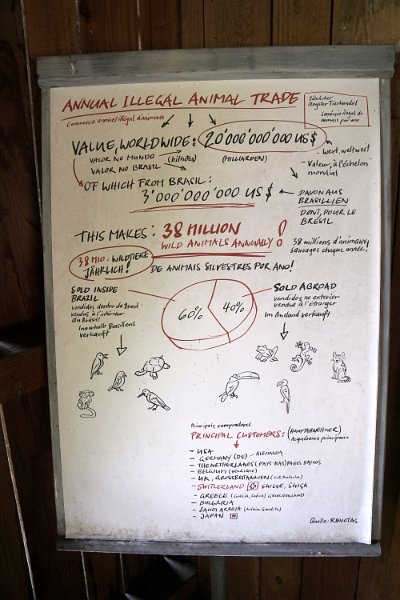 ANNUAL ILLEGAL ANIMAL TRADE
Commerce annuel illégal d'animaux
Jährlicher
illegaler Tierhandel
Comércio illegal de
animais por ano
VALUE, WORLDWIDE: 20'000'000'000 US $
VALOR NO MUNDO (bilhões) (MILLIARDEN)
VALOR NO BRASIL
Wert, weltweit
Valeur, à l'échelon
mondial
OF WHICH FROM BRASIL:
3'000'000'000 US $
DAVON AUS
BRASILIEN
DONT, POUR LE
BRÉSIL
THIS MAKES: 38 MILLION
WILD ANIMALS ANNUALLY!
38 millions d'animaux
sauvages chaque année.
38 MIO. WILDTIERE
JÄHRLICH!
DE ANIMAIS SILVESTRES POR ANO!
SOLD INSIDE
BRAZIL
vendidos dentro do Brasil
vendus à l'intérieur
du Brésil
Innerhalb Brasiliens
verkauft
60%
40%
SOLD ABROAD
vendidos no exterior
vendus à l'étranger
Im Ausland verkauft
Principais compradores
PRINCIPAL CUSTOMERS: (HAUPTABNEHMER)
Acquéreurs principaux
- USA
- GERMANY (DE) - ALEMANHA
- THE NETHERLANDS (PAYS BAS) PAISES BAIXOS
- BELGIUM (BELGIQUE)
- UK, GROSSBRITANNIEN
- SWITZERLAND SUISSE, SUIÇA
- GREECE GRIECHENLAND
- BULGARIA
- SAUDI ARABIA (Arabie Saudite)
- JAPAN
Quelle: RENCTAS